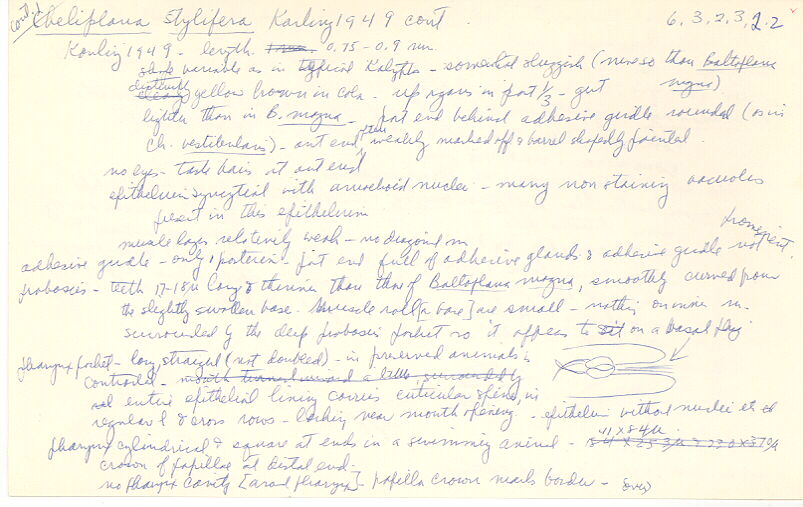 cont'd Cheliplana stylifera Karling 1949 cont. 6, 3, 2, 3, 2.2
Karling 1949 - length 0.75 - 0.9 mm.
variable as in typical Kalypto - somewhat sluggish (more so than Baltoplana magna)
distinctly yellow brown in color - up organs in post 1/3 - gut
lighter than in B. magna - post end behind adhesive girdle rounded (as in
Ch. vestibularis) - ant end often weakly marked off & barrel shapedly jointed.
no eyes - taste hairs at ant end
epithelium syncytial with amoeboid nuclei - many non staining vacuoles
present in this epithelium
muscle layer relatively weak - no diagonal m
adhesive girdle - only 1 posterior - post end full of adhesive glands & adhesive girdle not prominent.
proboscis - teeth 17-18u long & thinner than those of Baltoplana magna, smoothly curved from
the slightly swollen base. Muscle roll [or base] are small - nothing on inner m.
surrounded by the deep proboscis pocket so it appears to sit on a basal plug
pharynx pocket - long, straight (not doubled) - in preserved animals is
contracted - mouth turned inward a little, surrounded by
entire epithelial lining carries cuticular spines in
regular l & cross rows - lacking near mouth opening - epithelium without nuclei
pharynx cylindrical & square at ends in a swimming animal -
crown of papillae at distal end.
no pharynx cavity [around pharynx] - papilla crown marks border - (over)